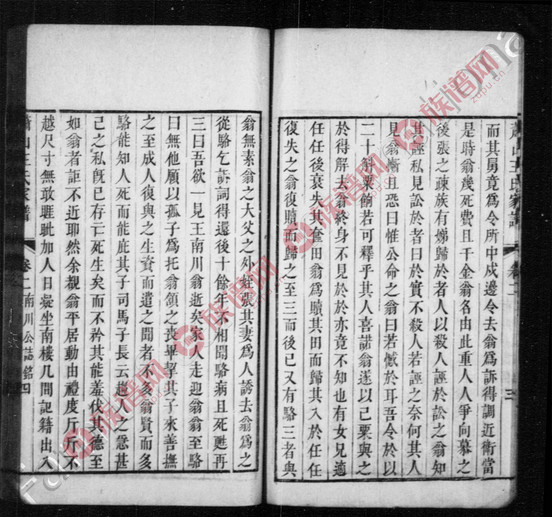 而其男竟為令所中成邊令去翁為訴得調近衛當
是時翁幾死費且千金翁名由此重人人爭向慕之
後張之疎族有嫁歸於者者以殺人誣於訟之翁知
其經私見訟於者曰於實不殺人若誣之奈何其人
見翁慚且恐曰惟公命之翁曰若憾於耳吾令於以
二十斛粟償若可釋乎其人喜諾翁遂以己粟與之
於得解去翁終身不見於於亦竟不知也有女兄適
任任後衰失其奩田翁為贖其田而歸其入於任任
復失之翁復贖而歸之至三而後已又有駱三者與
翁無素翁之大父之外姪張其妻為人誘去翁為之
從駱乞訴詞得還後十餘年不相聞駱病且死甦再
三曰吾欲一見王南川翁逝矣家人走迎翁翁至駱
曰無他願以孤子為托翁領之喪畢挈其子來善撫
之至成人復與之生資而遺之聞者不多翁賢而多
駱能知人死而能庇其子司馬子長云趨人之急甚
己之私既已存亡死生矣而不矜其能羞伐其德至
如翁者詎不近耶然余觀翁平居動由禮度斤斤不
越尺寸無敢雖馳加人日裳坐南樓几閒記籍出入
蕭山王氏家譜
卷二南川公誌銘四
蕭山王氏家譜
卷二
三
族譜网
zupu.cn